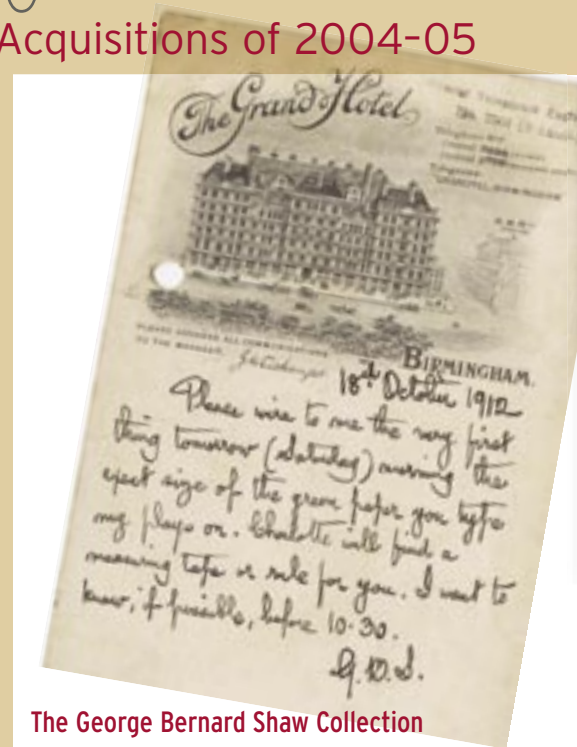 Acquisitions of 2004-05
The Grand Hotel
PLEASE ADDRESS ALL COMMUNICATIONS
TO THE MANAGER.
BIRMINGHAM.
18th October 1912
Please wire to me the very first
thing tomorrow (Saturday) morning the
exact size of the green paper you type
my plays on. Charlotte will find a
measuring tape or rule for you. I want to
know, if possible, before 10.30.
G.B.S.
The George Bernard Shaw Collection